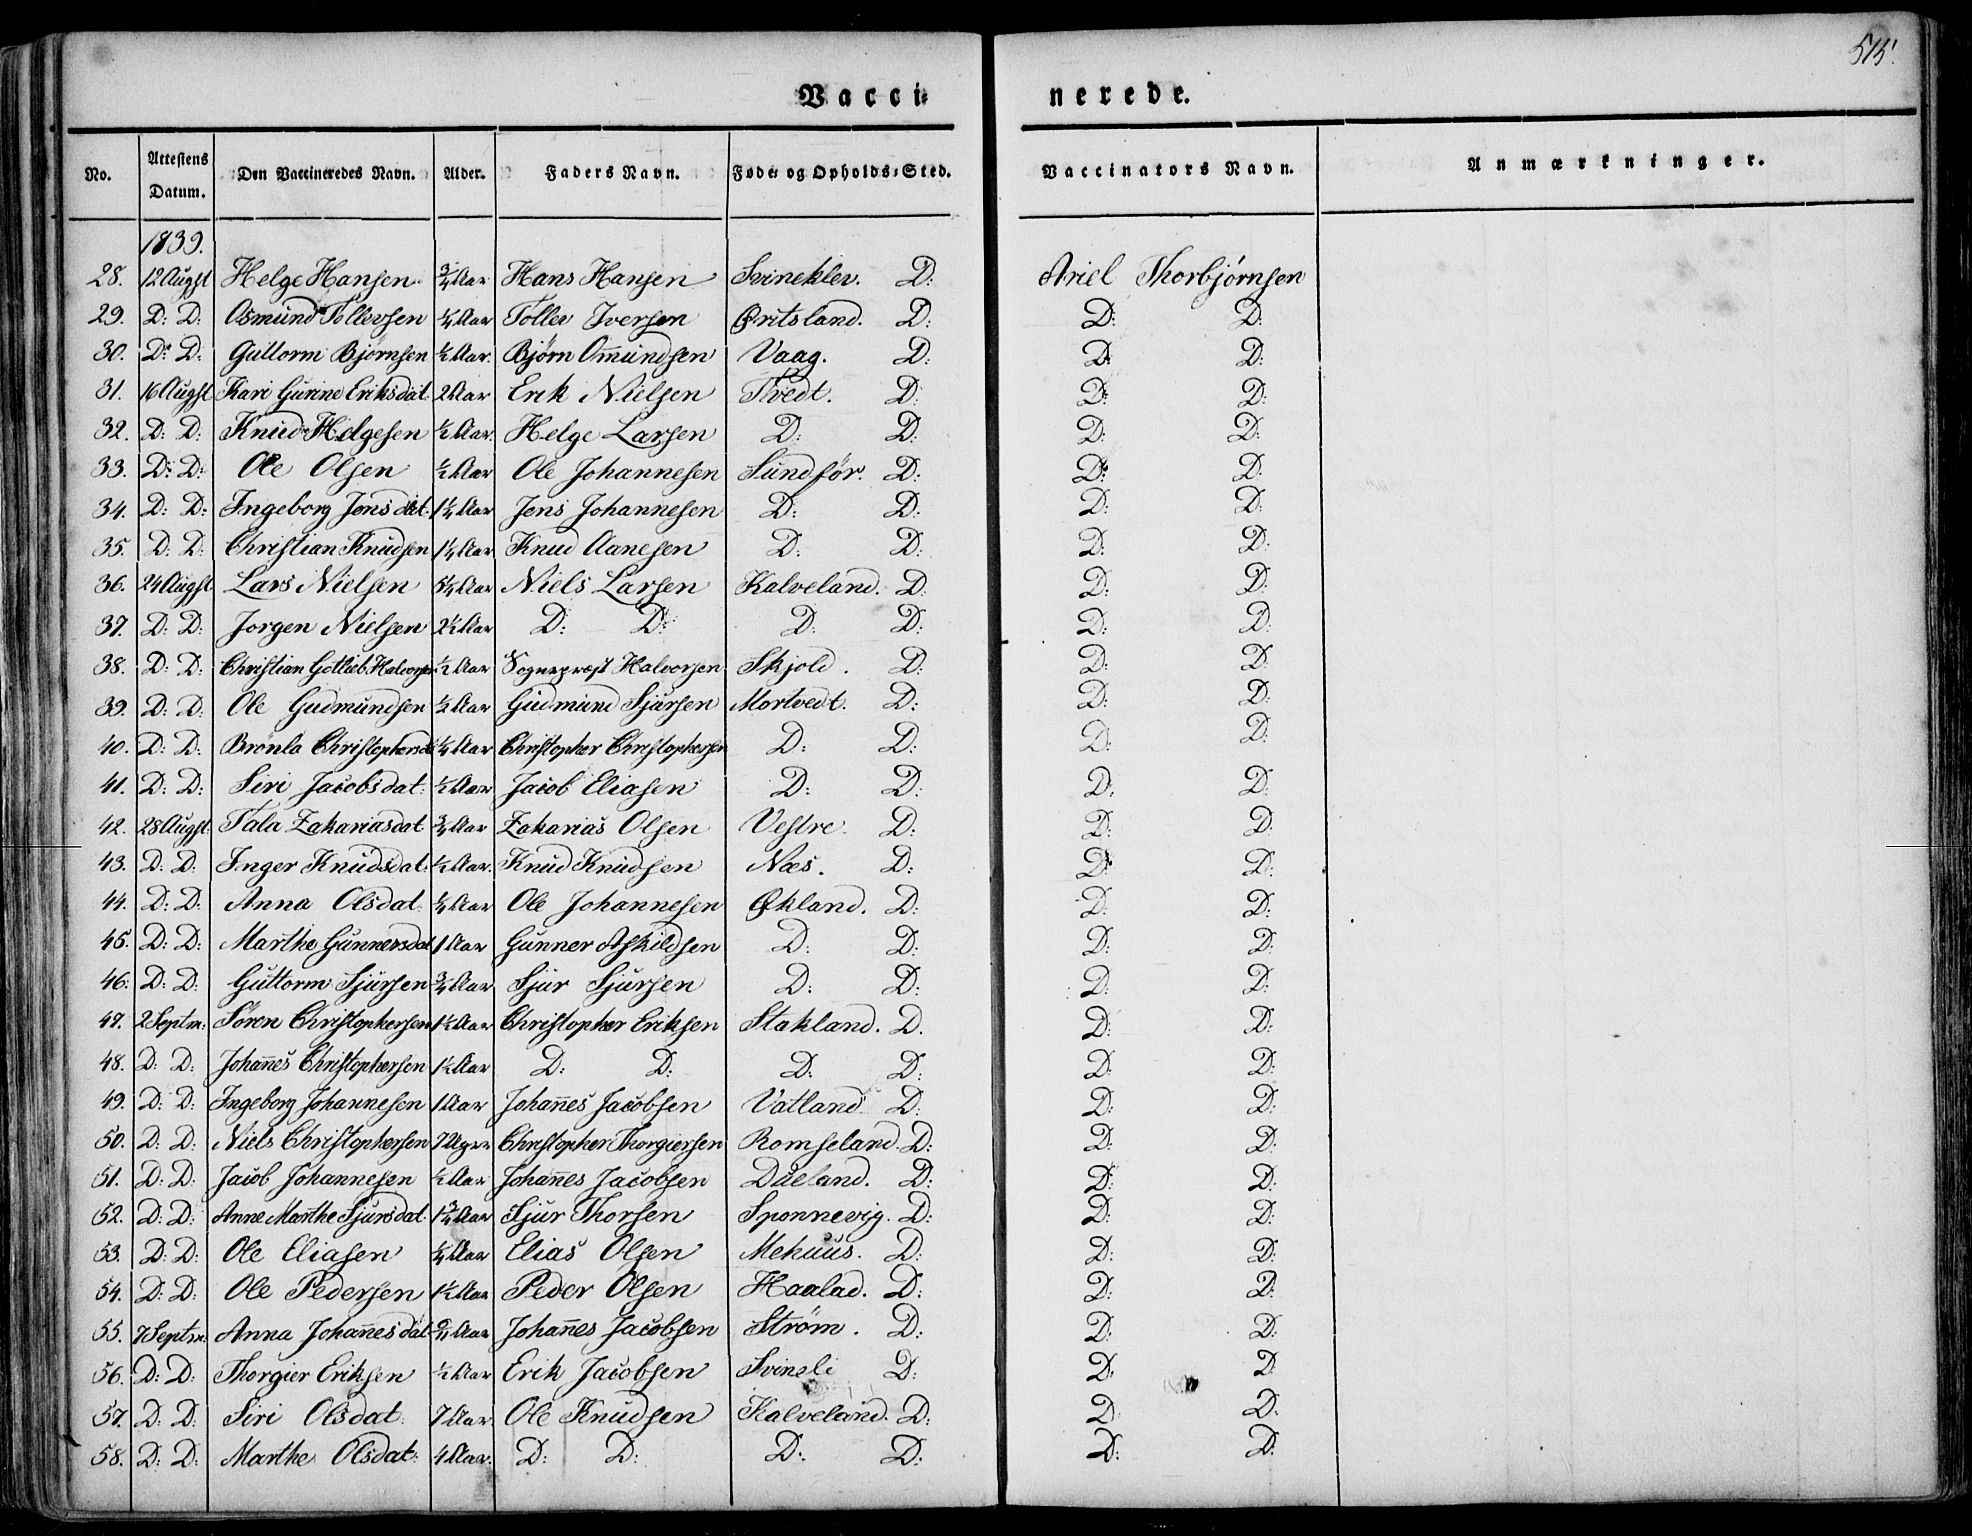 515.
Vacci= nerede.
No. Attestens Datum. Den Vaccineredes Navn. Alder. Faders Navn. Føde= og Opholds=Sted. Vaccinators Navn. Anmærkninger.
1839.
28. 12 Augst Helge Hansen ¾ Aar Hans Hansen Svineklev. D: Ariel Thorbjørnsen
29. D: D: Osmund Tollevsen ¼ Aar Tollev Iversen Øritsland. D: D: D:
30. D: D: Guttorm Bjørnsen ½ Aar. Bjørn Om̅undsen Vaag. D: D: D:
31. 16 Augst Kari Gurine Eriksdat. 2 Aar Erik Nielsen Tvedt. D: D: D:
32. D: D: Knud Helgesen ½ Aar. Helge Larsen D: D: D: D:
33. D: D: Ole Olsen ½ Aar Ole Johannesen Sundfør. D: D: D:
34. D: D: Ingeborg Jensdat. 1¼ Aar Jens Johannesen D: D: D: D:
35. D: D: Christian Knudsen 1¼ Aar Knud Aanesen D: D: D: D:
36. 24 Augst. Lars Nielsen 5¼ Aar Niels Larsen Kalveland. D. D: D:
37. D: D: Jorgen Nielsen 2½ Aar D: D: D: D: D: D:
38. D: D: Christian Gotlieb Halvorsen ½ Aar Sognepræst Halvorsen Skjold. D: D: D:
39. D: D: Ole Gudmundsen ½ Aar Gudmund Sjursen Mortvedt. D: D: D:
40. D: D: Brönla Christophersdat ¼ Aar Christopher Christophersen D: D: D: D:
41. D: D: Siri Jacobsdat. ½ Aar Jacob Eliasen D: D: D: D:
42. 28 Augst. Tala Zakariasdat ¾ Aar Zakarias Olsen Vestre. D: D: D:
43. D: D: Inger Knudsdat. ½ Aar. Knud Knudsen Næs. D: D: D:
44. D: D: Anna Olsdat. ¼ Aar Ole Johannesen Økland. D: D: D:
45. D: D: Marthe Gunnersdat 1 Aar Gunner Askildsen D: D: D: D:
46. D: D: Guttorm Sjursen ¾ Aar Sjur Sjursen D: D: D: D:
47. 2 Septm: Sören Christophersen 1½ Aar Christopher Eriksen Stakland. D. D: D:
48. D: D: Johan̅es Christophersen 1½ Aar D: D: D: D: D: D:
49. D: D: Ingeborg Johannesen 1 Aar Johan̅es Jacobsen Vatland D: D: D:
50. D: D: Niels Christophersen 7 Uger Christopher Thorgiersen Romseland. D: D: D:
51. D: D: Jacob Johannesen ½ Aar Johan̅es Jacobsen Dueland. D: D: D:
52. D: D: Anne Marthe Sjursdat. 1¾ Aar Sjur Thorsen Sponnevig. D: D: D:
53. D: D: Ole Eliasen ¼ Aar Elias Olsen Mehuus. D: D: D:
54. D: D: Ole Pedersen 1½ Aar Peder Olsen Haalad. D: D: D:
55. 7 Septm. Anna Johan̅esdat ¾ Aar Johan̅es Jacobsen Ström. D: D: D:
56. D: D: Thorgier Eriksen ½ Aar Erik Jacobsen Svinsli D: D: D:
57. D: D: Siri Olsdat. 7 Aar Ole Knudsen Kalveland. D: D: D:
58. D: D: Marthe Olsdat. 4 Aar. D: D: D: D: D: D: